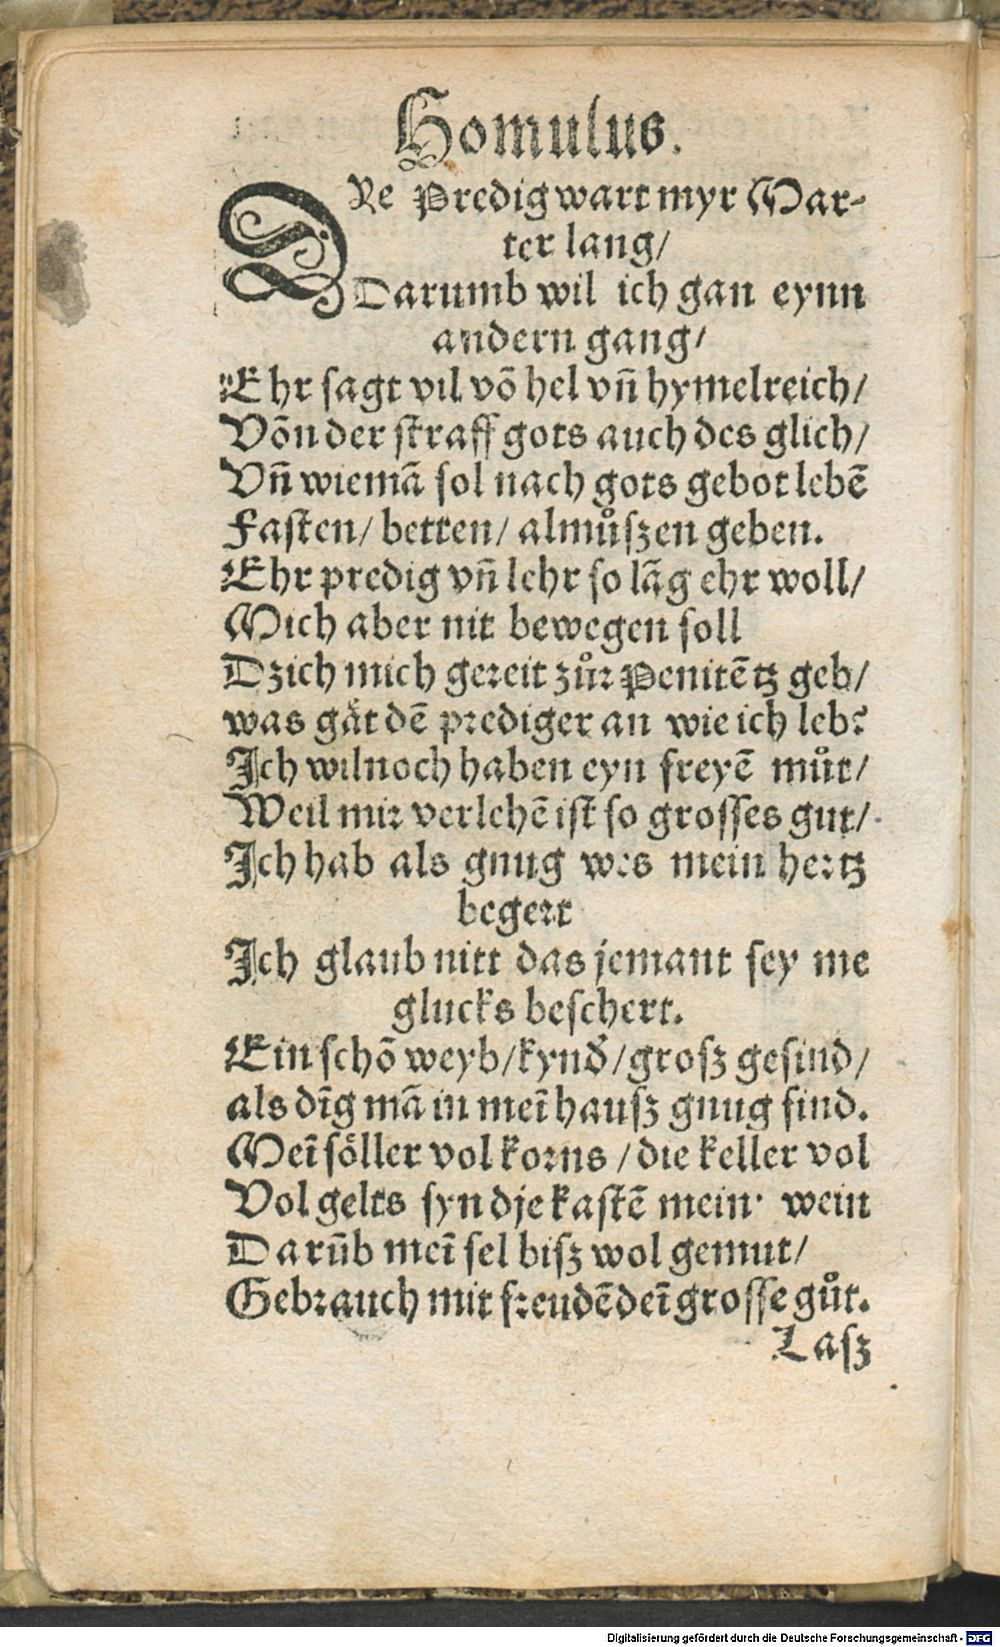 Homulus.
DJe Predig wart myr Mar-
ter lang/
Darumb wil ich gan eynn
andern gang/
Ehr sagt vil võ hel vñ hymelreich/
Võn der straff gots auch des glich/
Vñ wiemã sol nach gots gebot lebẽ
Fasten/ betten/ almůſzen geben.
Ehr predig vñ lehr so lãg ehr woll/
Mich aber nit bewegen soll
Dzich mich gereit zůr Penitẽtz geb/
was gåt dẽ prediger an wie ich leb?
Ich wil noch haben eyn freyẽ můt/
Weil mir verlehẽ ist so grosses gut/
Ich hab als gnug wes mein hertz
begert
Ich glaub nitt das jemant sey me
glucks beschert.
Ein schõ weyb/kynd/groſz gesind/
als dĩg mã in meĩ hauſz gnug find.
Meĩ söller vol korns /die keller vol
Vol gelts syn dje kastẽ mein· wein
Darũb meĩ sel biſz wol gemut/
Gebrauch mit freudẽ deĩ grosse gůt.
Laſz
Digitalisierung gefördert durch die Deutsche Forschungsgemeinschaft - DFG